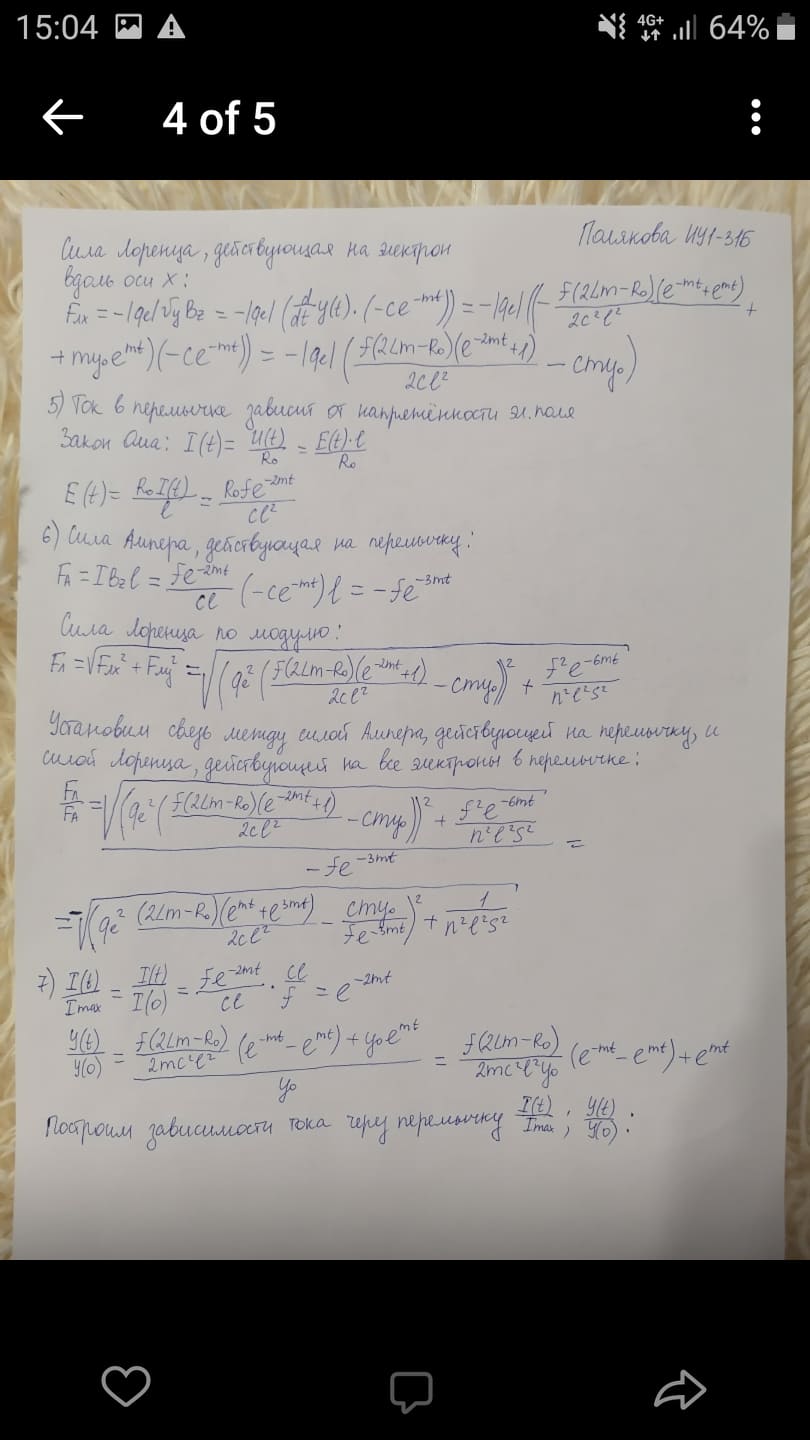 15:04 4G+ 64%
4 of 5
Полякова ИУ1-31Б
Сила Лоренца, действующая на электрон
вдоль оси X:
Fлx = -|qe|VyBz = -|qe|(d/dt y(t)·(-ce^-mt)) = -|qe|((-f(2Lm-R0)(e^-mt+e^mt)/2c²l² +
+ my0e^mt)(-ce^-mt)) = -|qe|(f(2Lm-R0)(e^-2mt+1)/2cl² - cmy0)
5) Ток в перемычке зависит от напретённости эл. поля
Закон Ома: I(t) = U(t)/R0 = E(t)·l/R0
E(t) = R0I(t)/l = R0fe^-2mt/cl²
6) Сила Ампера, действующая на перемычку:
FA = IBzl = fe^-2mt/cl (-ce^-mt)l = -fe^-3mt
Сила Лоренца по модулю:
Fл = √(Fлx² + Fлy²) = √((qe²(f(2Lm-R0)(e^-2mt+1)/2cl² - cmy0))² + f²e^-6mt/n²l²s²)
Установим связь между силой Ампера, действующей на перемычку, и
силой Лоренца, действующей на все электроны в перемычке:
Fл/FA = √((qe²(f(2Lm-R0)(e^-2mt+1)/2cl² - cmy0))² + f²e^-6mt/n²l²s²)/-fe^-3mt =
= -√((qe² (2Lm-R0)(e^mt+e^3mt)/2cl² - cmy0/fe^-3mt)² + 1/n²l²s²)
7) I(t)/Imax = I(t)/I(0) = fe^-2mt/cl · cl/f = e^-2mt
y(t)/y(0) = (f(2Lm-R0)/2mc²l² (e^-mt - e^mt) + y0e^mt)/y0 = f(2Lm-R0)/2mc²l²y0 (e^-mt - e^mt) + e^mt
Построим зависимости тока черу перемычку I(t)/Imax ; y(t)/y(0) :